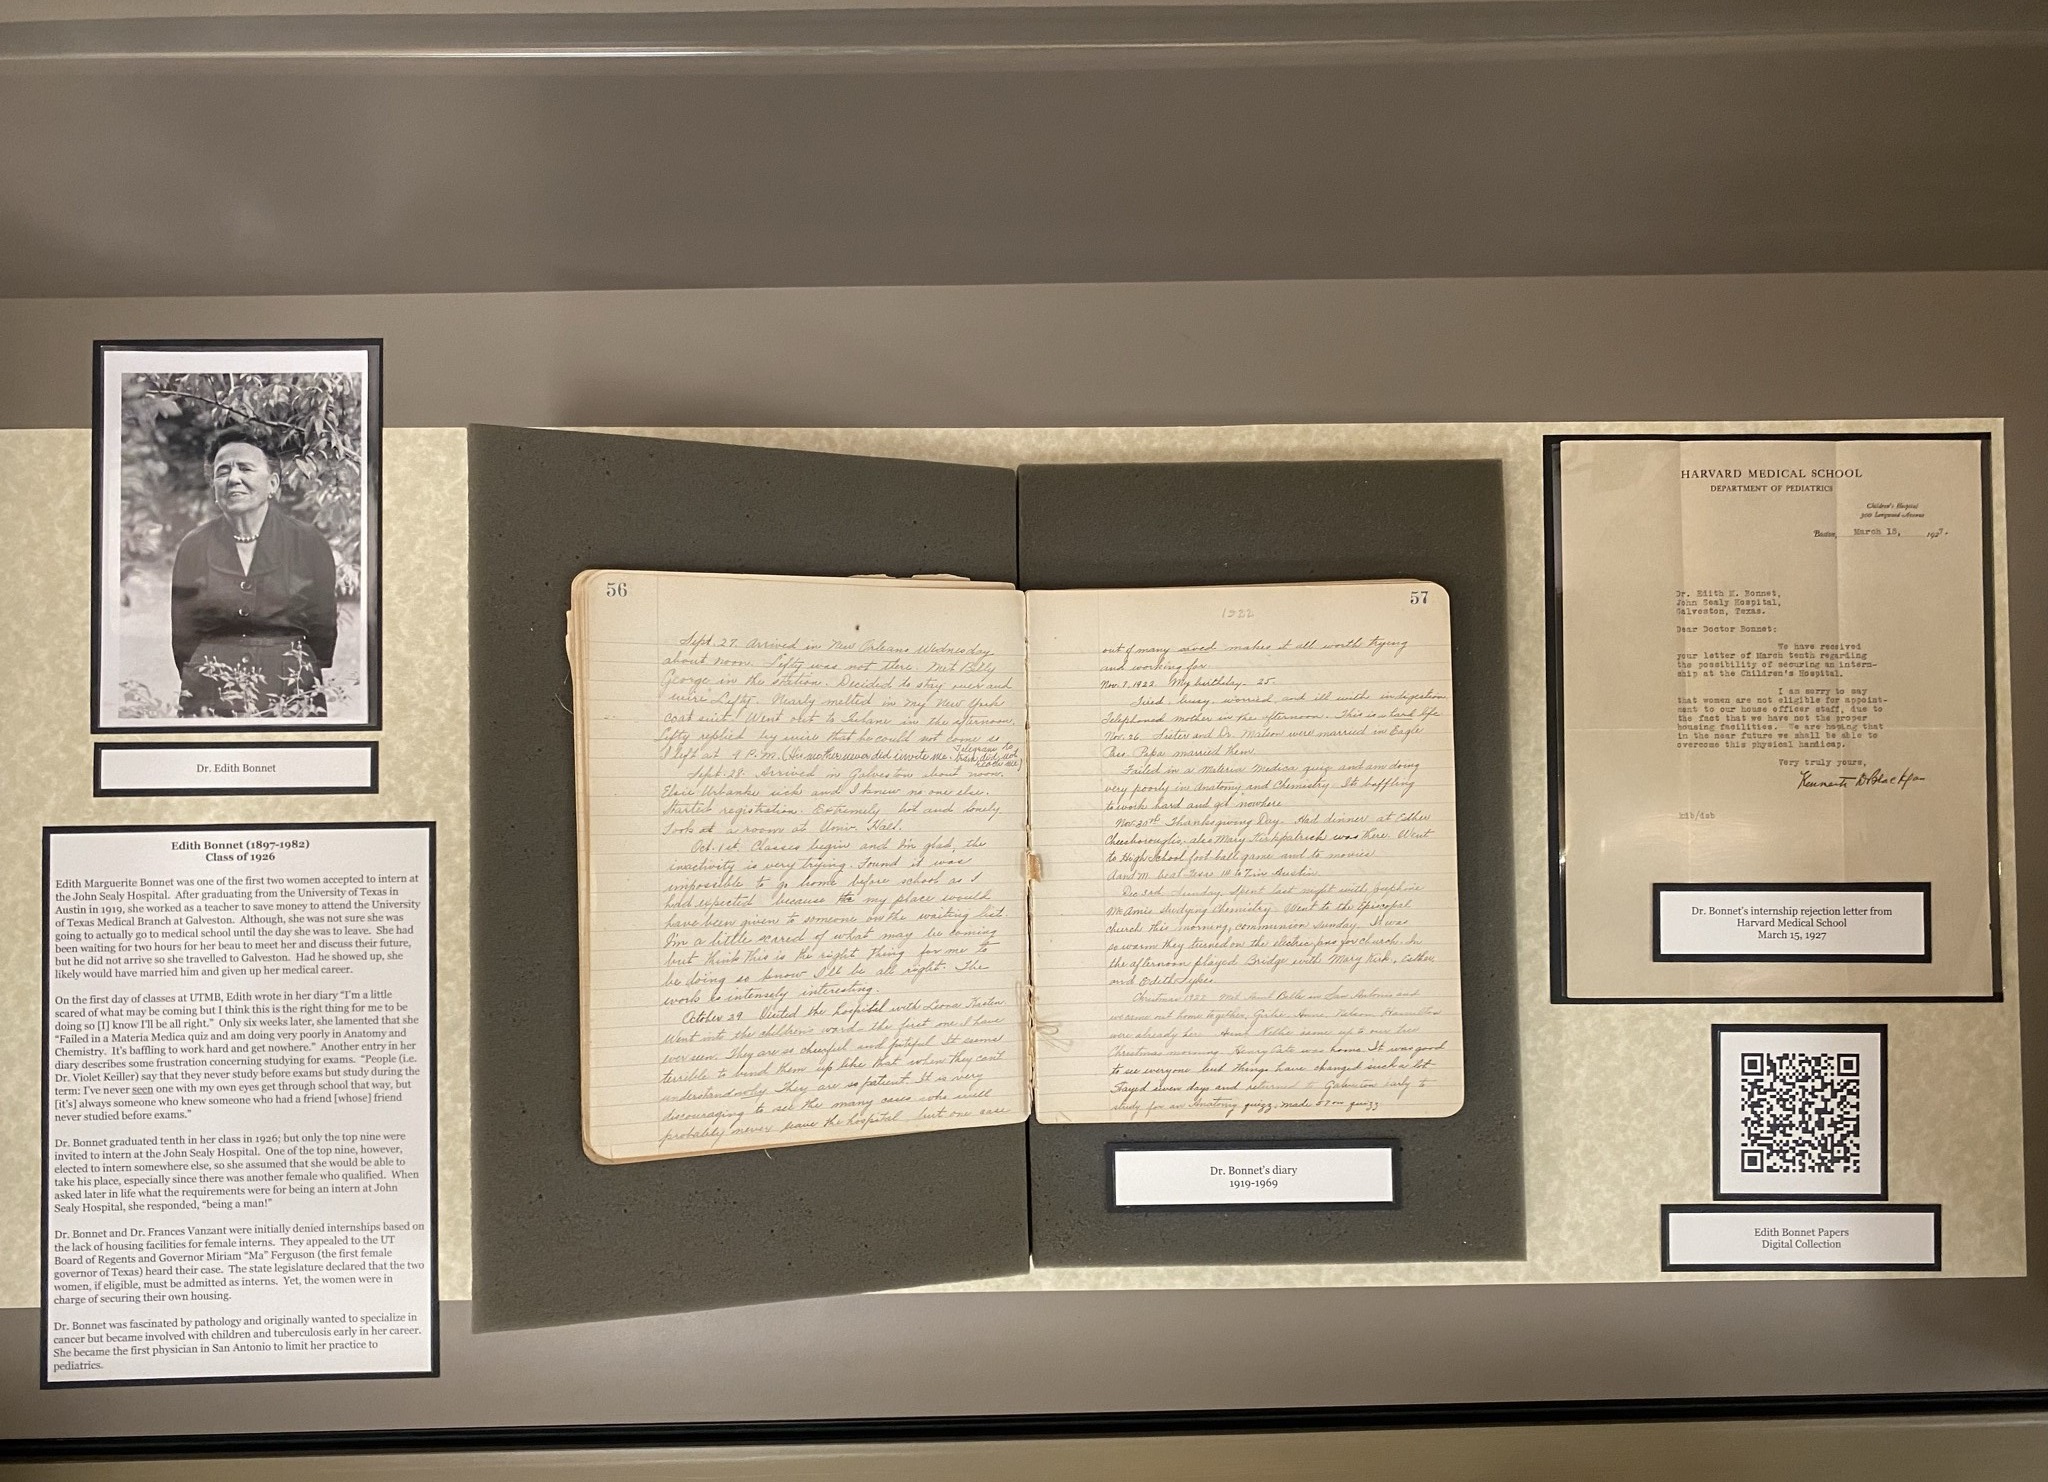 Dr. Edith Bonnet
Edith Bonnet (1897-1982)
Class of 1926
Edith Marguerite Bonnet was one of the first two women accepted to intern at
the John Sealy Hospital. After graduating from the University of Texas in
Austin in 1919, she worked as a teacher to save money to attend the University
of Texas Medical Branch at Galveston. Although, she was not sure she was
going to actually go to medical school until the day she was to leave. She had
been waiting for two hours for her beau to meet her and discuss their future,
but he did not arrive so she travelled to Galveston. Had he showed up, she
likely would have married him and given up her medical career.
On the first day of classes at UTMB, Edith wrote in her diary “I'm a little
scared of what may be coming but I think this is the right thing for me to be
doing so [I] know I'll be all right.” Only six weeks later, she lamented that she
“Failed in a Materia Medica quiz and am doing very poorly in Anatomy and
Chemistry. It's baffling to work hard and get nowhere.” Another entry in her
diary describes some frustration concerning studying for exams. “People (i.e.
Dr. Violet Keiller) say that they never study before exams but study during the
term: I've never seen one with my own eyes get through school that way, but
[it's] always someone who knew someone who had a friend [whose] friend
never studied before exams.”
Dr. Bonnet graduated tenth in her class in 1926; but only the top nine were
invited to intern at the John Sealy Hospital. One of the top nine, however,
elected to intern somewhere else, so she assumed that she would be able to
take his place, especially since there was another female who qualified. When
asked later in life what the requirements were for being an intern at John
Sealy Hospital, she responded, “being a man!”
Dr. Bonnet and Dr. Frances Vanzant were initially denied internships based on
the lack of housing facilities for female interns. They appealed to the UT
Board of Regents and Governor Miriam “Ma” Ferguson (the first female
governor of Texas) heard their case. The state legislature declared that the two
women, if eligible, must be admitted as interns. Yet, the women were in
charge of securing their own housing.
Dr. Bonnet was fascinated by pathology and originally wanted to specialize in
cancer but became involved with children and tuberculosis early in her career.
She became the first physician in San Antonio to limit her practice to
pediatrics.
56
Sept. 27. Arrived in New Orleans Wednesday
about noon. Lefty was not there. Met Billy
George in the station. Decided to stay over and
wire Lefty. Nearly melted in my New York
coat suit. Went out to Tulane in the afternoon.
Lefty replied by wire that he could not come so
I left at 9 P.M. (His mother never did invite me.
Sept. 28. Arrived in Galveston about noon.
Elsie Urbanke sick and I knew no one else.
Started registration. Extremely hot and lonely.
Took at a room at Univ. Hall.
Oct. 1st. Classes begin and I'm glad, the
inactivity is very trying. Found it was
impossible to go home before school as I
had expected because my place would
have been given to someone on the waiting list.
I'm a little scared of what may be coming
but think this is the right thing for me to
be doing so know I'll be all right. The
work is intensely interesting.
October 29. Visited the hospital with Leona
Went into the children's ward - the first one I have
ever seen. They are so cheerful and It seems
terrible to bind them up like that when they can't
understand why. They are so patient. It is very
discouraging to see the many cases who will
probably never leave the hospital but one case
57
1922
out of many saved makes it all worth trying
and working for.
Nov. 7. 1922. My birthday - 25 -
Tired, busy, worried, and ill with indigestion
Telephoned mother in the afternoon. This is a hard life
Nov. 26. Sister and Dr. were married in Eagle
Pass. Papa married them.
Failed in a Materia Medica quiz and am doing
very poorly in Anatomy and Chemistry. Its baffling
to work hard and get nowhere
Thanksgiving Day. Had dinner at Esther
Mary Kirkpatrick was there. Went
to High School foot ball game and to movies
A and M. beat Texas in Austin
Dec 3rd. Sunday. Spent last night with Josephine
McAmis studying Chemistry. Went to the Episcopal
church this morning, communion Sunday. It was
so warm they turned on the electric fans for church. In
the afternoon played Bridge with Mary Kirk, Esther
and Edith
Christmas 1922 Met Aunt Belle in San Antonio and
we came out home together,
were already here. Aunt came up to our tree
Christmas morning. was home. It was good
to see everyone but things have changed such a lot
Stayed seven days and returned to Galveston early to
study for an Anatomy quizz. made on quizz
Dr. Bonnet's diary
1919-1969
HARVARD MEDICAL SCHOOL
DEPARTMENT OF PEDIATRICS
Children's Hospital
300 Longwood Avenue
Boston, March 15, 1927.
Dr. Edith M. Bonnet,
John Sealy Hospital,
Galveston, Texas.
Dear Doctor Bonnet:
We have received
your letter of March tenth regarding
the possibility of securing an intern-
ship at the Children's Hospital.
I am sorry to say
that women are not eligible for appoint-
ment to our house officer staff, due to
the fact that we have not the proper
housing facilities. We are hoping that
in the near future we shall be able to
overcome this physical handicap.
Very truly yours,
Kenneth D Blackfan
Dr. Bonnet's internship rejection letter from
Harvard Medical School
March 15, 1927
Edith Bonnet Papers
Digital Collection